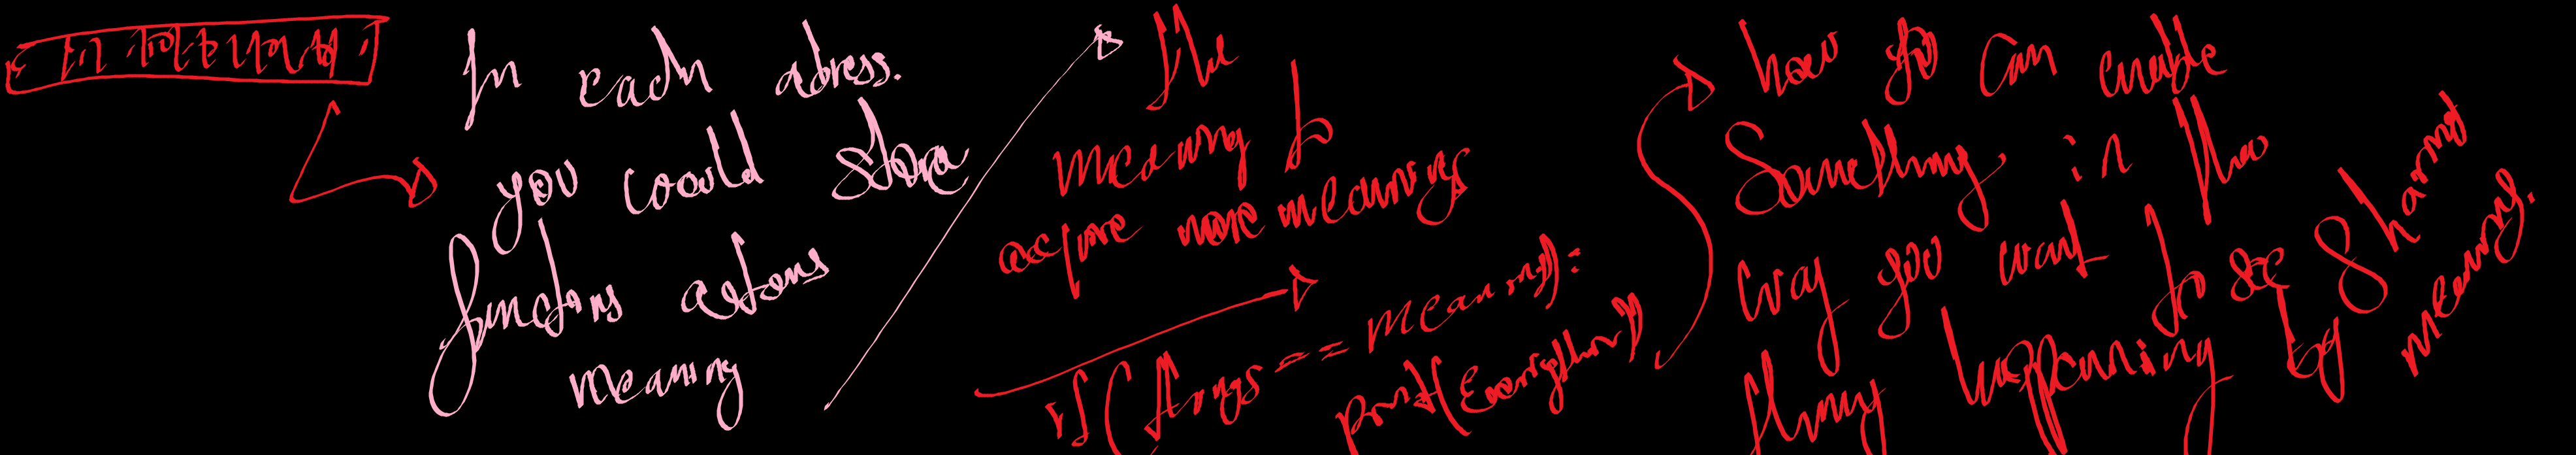 In each adress.
you could store
functions actons
meaning
the
meaning to
acqire more meanings
if (things == meaning):
print(Everything)
how you can enable
Something in the
way you want to see
thing happening by Sharing
meaning.